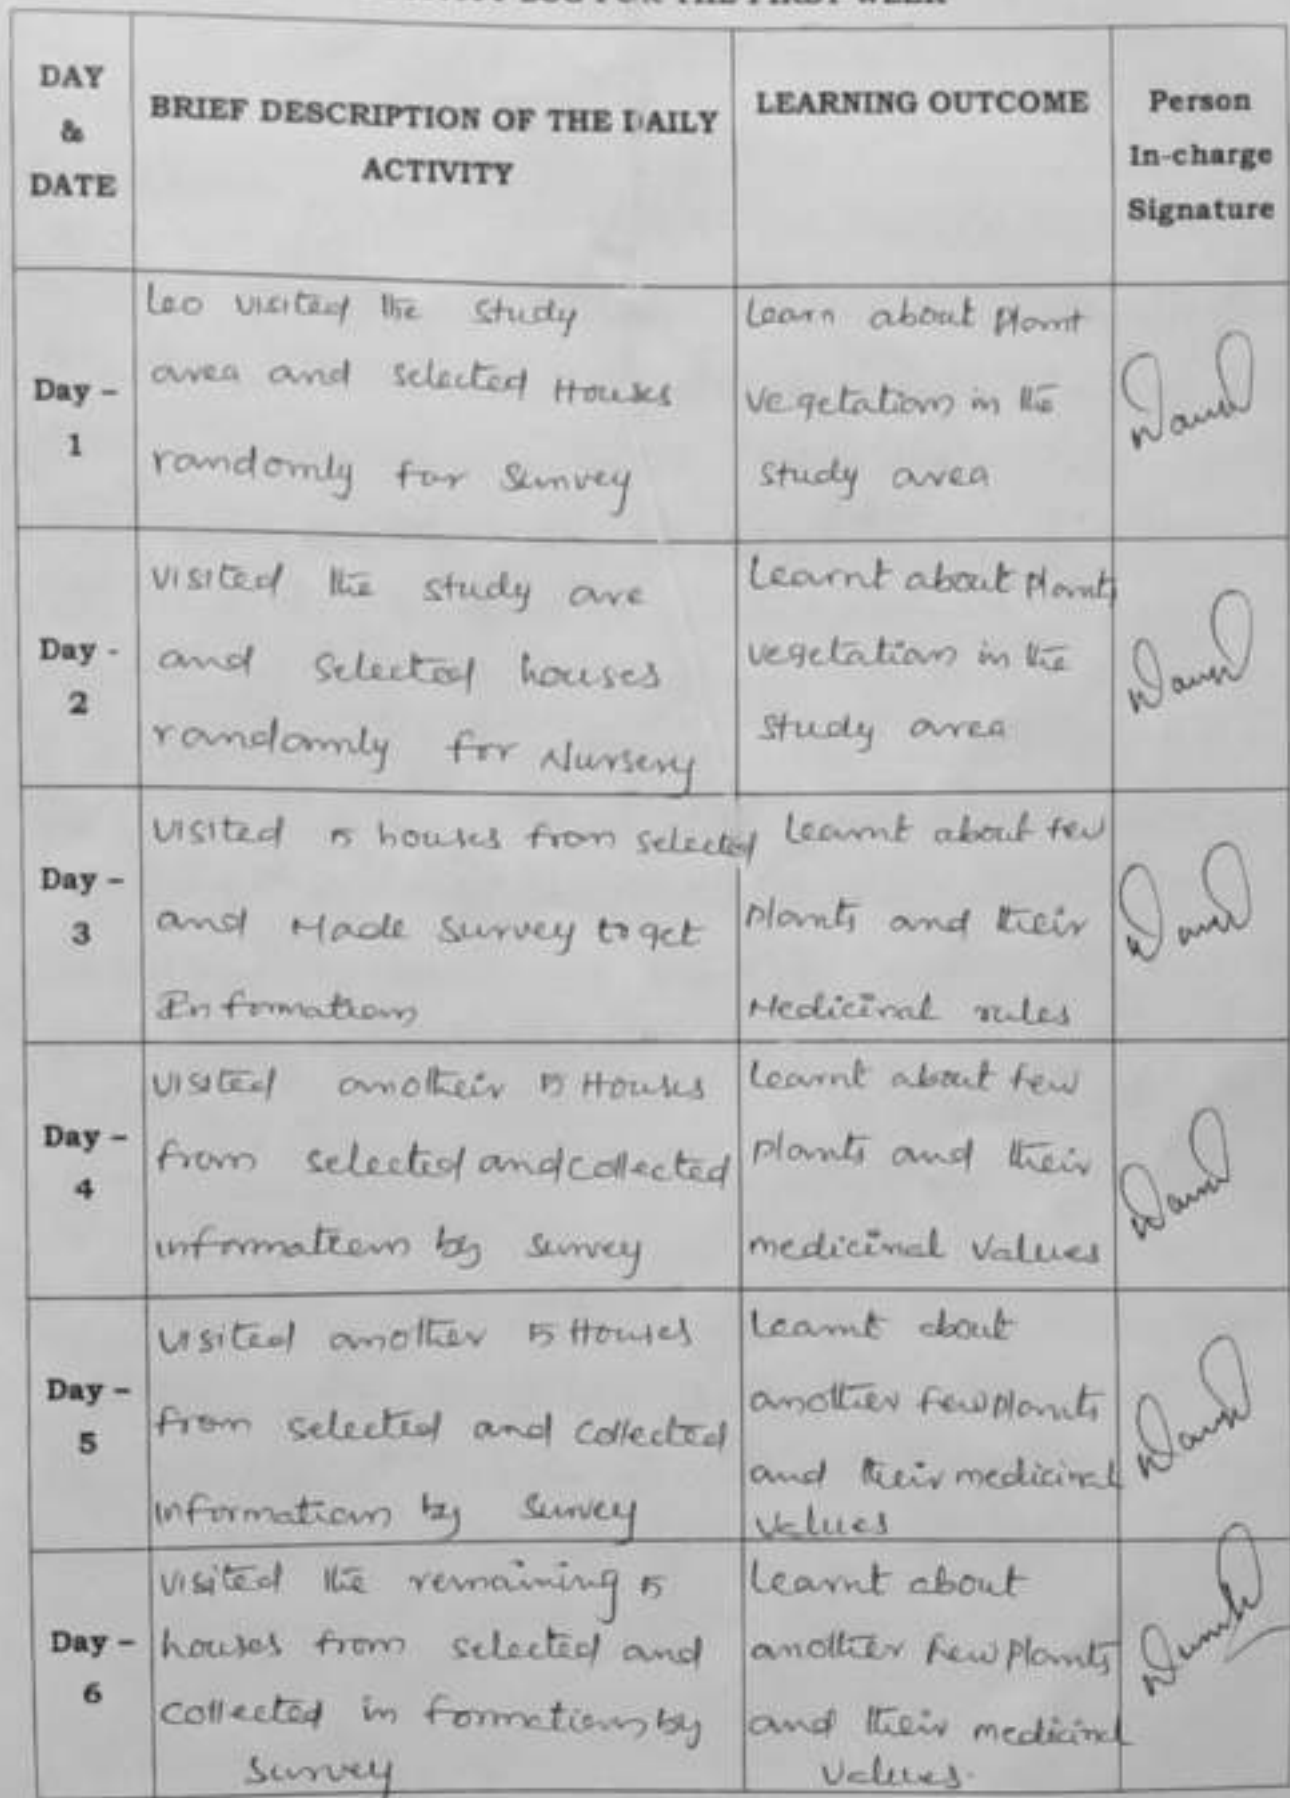 LOG FOR THE FIRST WEEK
DAY & DATE
BRIEF DESCRIPTION OF THE DAILY ACTIVITY
LEARNING OUTCOME
Person In-charge Signature
Day - 1
Leo visited the study
area and selected Houses
randomly for Survey
Learn about Plant
vegetation in the
study area
Day - 2
visited the study are
and selected houses
randomly for Nursery
Learnt about Plants
vegetation in the
study area
Day - 3
visited 5 houses from selected
and Made survey to get
Information
Learnt about few
plants and their
Medicinal rules
Day - 4
visited anotheir 5 Houses
from selected and collected
information by survey
Learnt about few
plants and their
medicinal values
Day - 5
visited another 5 Houses
from selected and collected
information by survey
Learnt about
another few plants
and their medicinal
values
Day - 6
visited the remaining 5
houses from selected and
collected in formation by
survey
Learnt about
another few plants
and their medicinal
values.